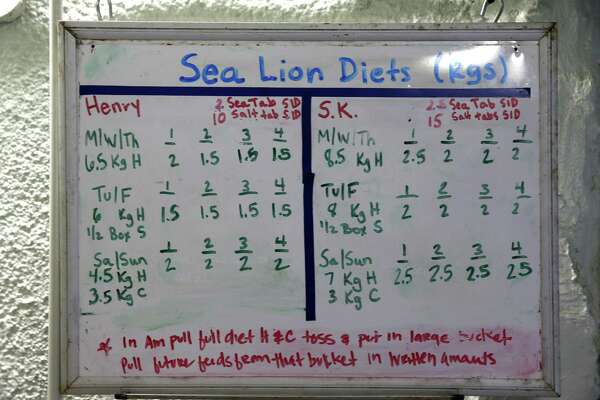 Sea Lion Diets (Kgs)
Henry
2 Sea Tab SID
10 Salt tab SID
M/W/Th 1 2 3 4
6.5 Kg H 2 1.5 1.5 1.5
Tu/F 1 2 3 4
6 Kg H 1.5 1.5 1.5 1.5
1/2 Box S
Sa/Sun 1 2 3 4
4.5 Kg H 2 2 2 2
3.5 Kg C
S.K.
Sea Tab SID
15 Salt tabs SID
M/W/Th 1 2 3 4
8.5 Kg H 2.5 2 2 2
Tu/F 1 2 3 4
8 Kg H 2 2 2 2
1/2 Box S
Sa/Sun 1 2 3 4
7 Kg H 2.5 2.5 2.5 2.5
3 Kg C
* In Am pull full diet H & C toss & put in large bucket
Pull future feeds from that bucket in written amounts